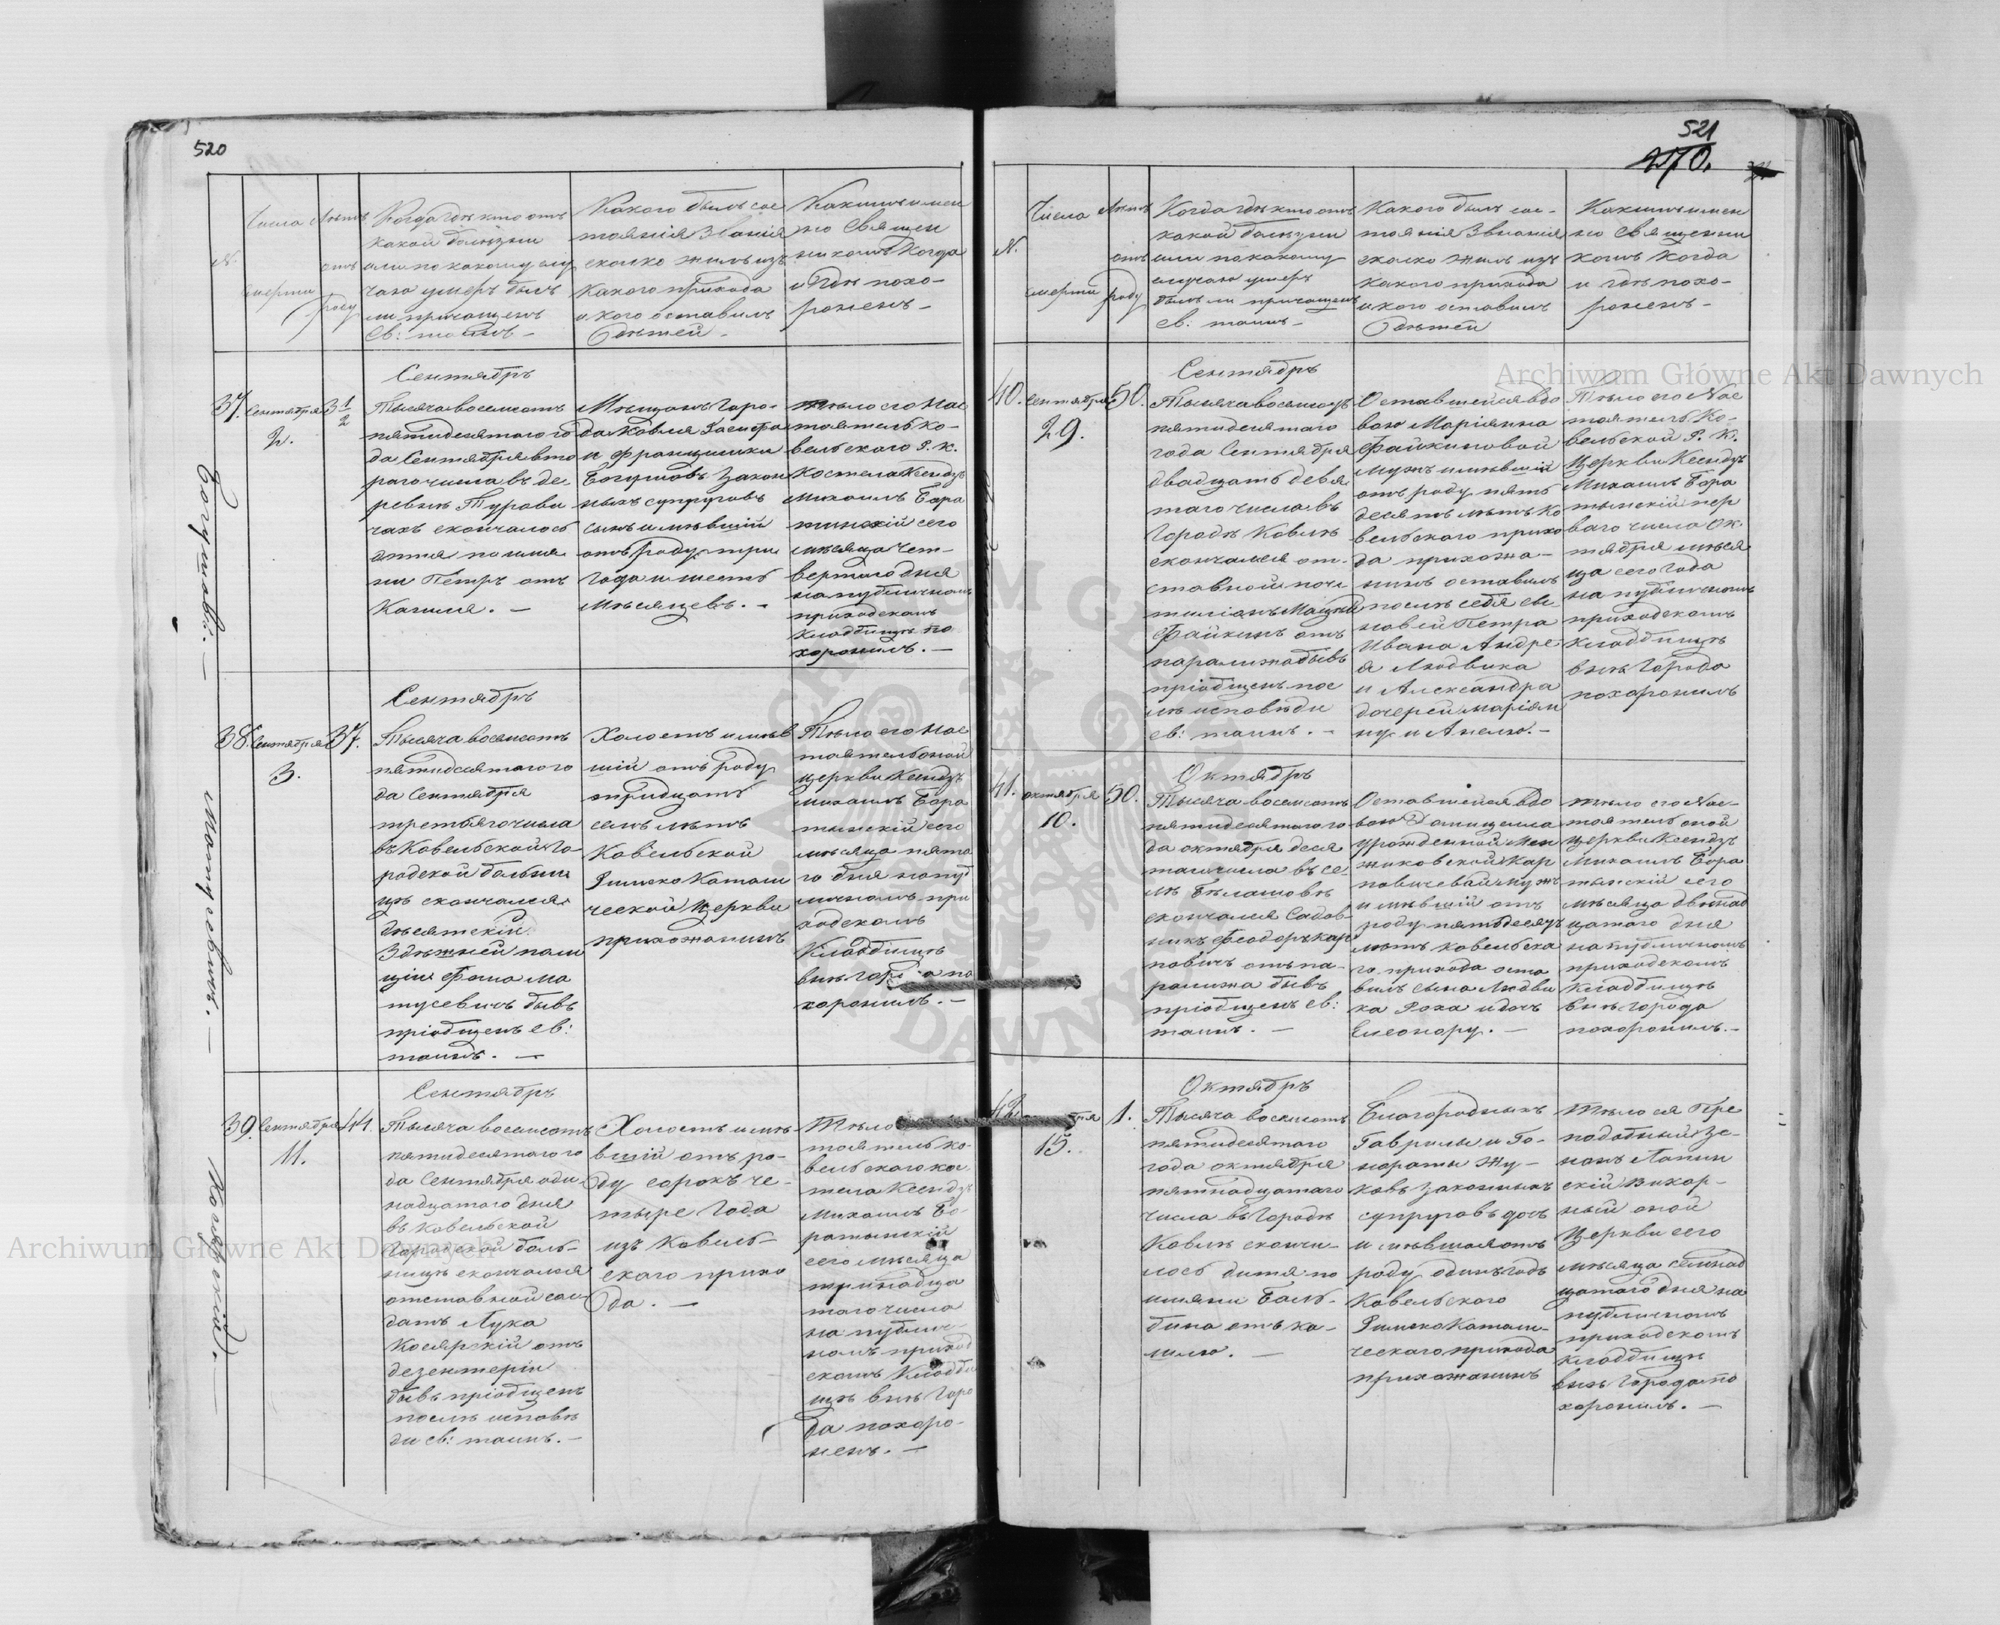 520
N.
Числа
смерти
Лѣтъ
отъ
роду
Когда гдѣ кто отъ
какой болѣзни
или по какому слу
чаю умеръ былъ
ли причащенъ
Св: таинъ —
Какого былъ сос
тоянія Званія
сколко жилъ изъ
какого прихода
и кого оставилъ
Дѣтей —
Какимъ имен
но Священ
никомъ Когда
и Гдѣ похо-
роненъ —
37.
Сентября
2.
3 1/2
Сентябрь
Тысяча восемсотъ
пятидесятого го
да Сентября вто
рого числа въ де
ревнѣ Турови
чахъ скончалось
дитя по име
ни Петръ отъ
Кашля. —
Мѣщанъ Горо-
да Ковля Іосифа
и Францишки
Богушовъ Закон
ныхъ супруговъ
сынъ имѣвшій
отъ роду три
года и шесть
мѣсяцевъ. —
тѣло его Нас
тоятель Ко-
вельского Р. К.
Костела Ксендзъ
Михаилъ Бора
тынскій сего
мѣсяца чет-
вертого дня
на публичномъ
приходскомъ
Кладбищѣ по
хоронилъ. —
Богушовъ. —
38.
Сентября
3.
37.
Сентябрь
Тысяча восемсотъ
пятидесятого го
да Сентября
третьяго числа
въ Ковельской го
родской больни
цѣ скончался
дѣсятскій
Здѣшней поли
ціи Фома Ма
тусевичъ бывъ
пріобщенъ св:
таинъ. —
Холостъ имѣв
шій отъ роду
тридцать
семъ лѣтъ
Ковельской
Римско Католи
ческой Церкви
прихожанинъ
Тѣло его Нас
тоятель оной
церкви Ксендзъ
Михаилъ Бора
тынскій сего
мѣсяца пято
го дня на пуб
личномъ при
ходскомъ
Кладбищѣ
внѣ
по
хоронилъ. —
Матусевичъ. —
39.
Сентября
11.
44.
Сентябрь
Тысяча восемсотъ
пятидесятого го
да Сентября оди
надцатого дня
въ Ковельской
Городской боль-
ницѣ скончался
отставной сол
датъ Лука
Коляр­скій отъ
дезентеріи
бывъ пріобщенъ
послѣ исповѣ
ди св: таинъ. —
Холостъ имѣ-
вшій отъ ро-
ду сорокъ че-
тыре года
изъ Ковель-
ского прихо
да. —
Тѣло
тоятель Ко-
вельского кос
тела Ксендзъ
Михаилъ Бо-
ратынскій
сего мѣсяца
тринадца
того числа
на публич-
номъ приход
скомъ Кладби
щѣ внѣ Горо
да похоро-
ненъ. —
521
270.
N.
Числа
смерти
Лѣтъ
отъ
роду
Когда гдѣ кто отъ
какой болѣзни
или по какому
случаю умеръ
былъ ли причащенъ
Св. таинъ —
Какого былъ сос-
тоянія Званія
сколко жилъ изъ
какого прихода
и кого оставилъ
Дѣтей
Какимъ имен
но Священни
комъ Когда
и гдѣ похо-
роненъ —
40.
Сентября
29.
50.
Сентябрь
Тысяча восемсотъ
пятидесятого
года Сентября
двадцать девя
того числа въ
Городѣ Ковлѣ
скончался от-
ставной почт
Файкинъ отъ
паралижа бывъ
пріобщенъ пос
лѣ исповѣди
св: таинъ. —
Оставшейся вдо
вою Маріанна
Файкиновой
мужъ имѣвшій
отъ роду пять
десятъ лѣтъ Ко
вельского прихо
да прихожа-
нинъ оставилъ
послѣ себя сы
новей Петра
Ивана Андре
я Людвика
и Александра
дочерей Маріян
ну и Анелю. —
Тѣло его Нас
тоятель Ко-
вельской Р. К.
Церкви Ксендзъ
Михаилъ Бора
тынскій пер
ваго числа Ок
тября мѣся
ца сего года
на публичномъ
приходскомъ
кладбищѣ
внѣ Города
похоронилъ
41.
октября
10.
50.
Октябрь
Тысяча восемсотъ
пятидесятого го
да октября деся
того числа въ се
лѣ Бѣлашовѣ
скончался Садов-
никъ Феодоръ Кар
повичъ отъ па-
ралижа бывъ
пріобщенъ св:
таинъ. —
Оставшейся Вдо
вою Домицелла
урожденной Мен
жиковской Кар
повичевай мужъ
имѣвшій отъ
роду пятьдесятъ
лѣтъ Ковельска
го прихода оста
вилъ сына Людви
ка Роха и доч
Елеонору. —
тѣло его Нас-
тоятель оной
церкви Ксендзъ
Михаилъ Бора
тынскій сего
мѣсяца двѣнад
цатого дня
на публичномъ
приходскомъ
Кладбищѣ
внѣ города
похоронилъ. —
42
15.
1.
Октябрь
Тысяча восемсотъ
пятидесятого
года октября
пятнадцатого
числа въ городѣ
Ковлѣ скончи-
лось дитя по
имяни Баль-
бина отъ ка-
шлю. —
Благородныхъ
Гаврилы и Го-
нораты Жу-
ковъ законныхъ
супруговъ дочь
имѣвшая отъ
роду одинъ годъ
Ковельского
Римско Катали-
ческаго прихода
прихожанинъ
Тѣло ея Пре
подобный Зе-
нонъ Лопин
скій Викар-
ный оной
Церкви сего
мѣсяца семнад
цатого дня на
публичномъ
приходскомъ
кладбищѣ
внѣ Города по
хоронилъ. —
Archiwum Główne Akt Dawnych
Archiwum Główne Akt Dawnych